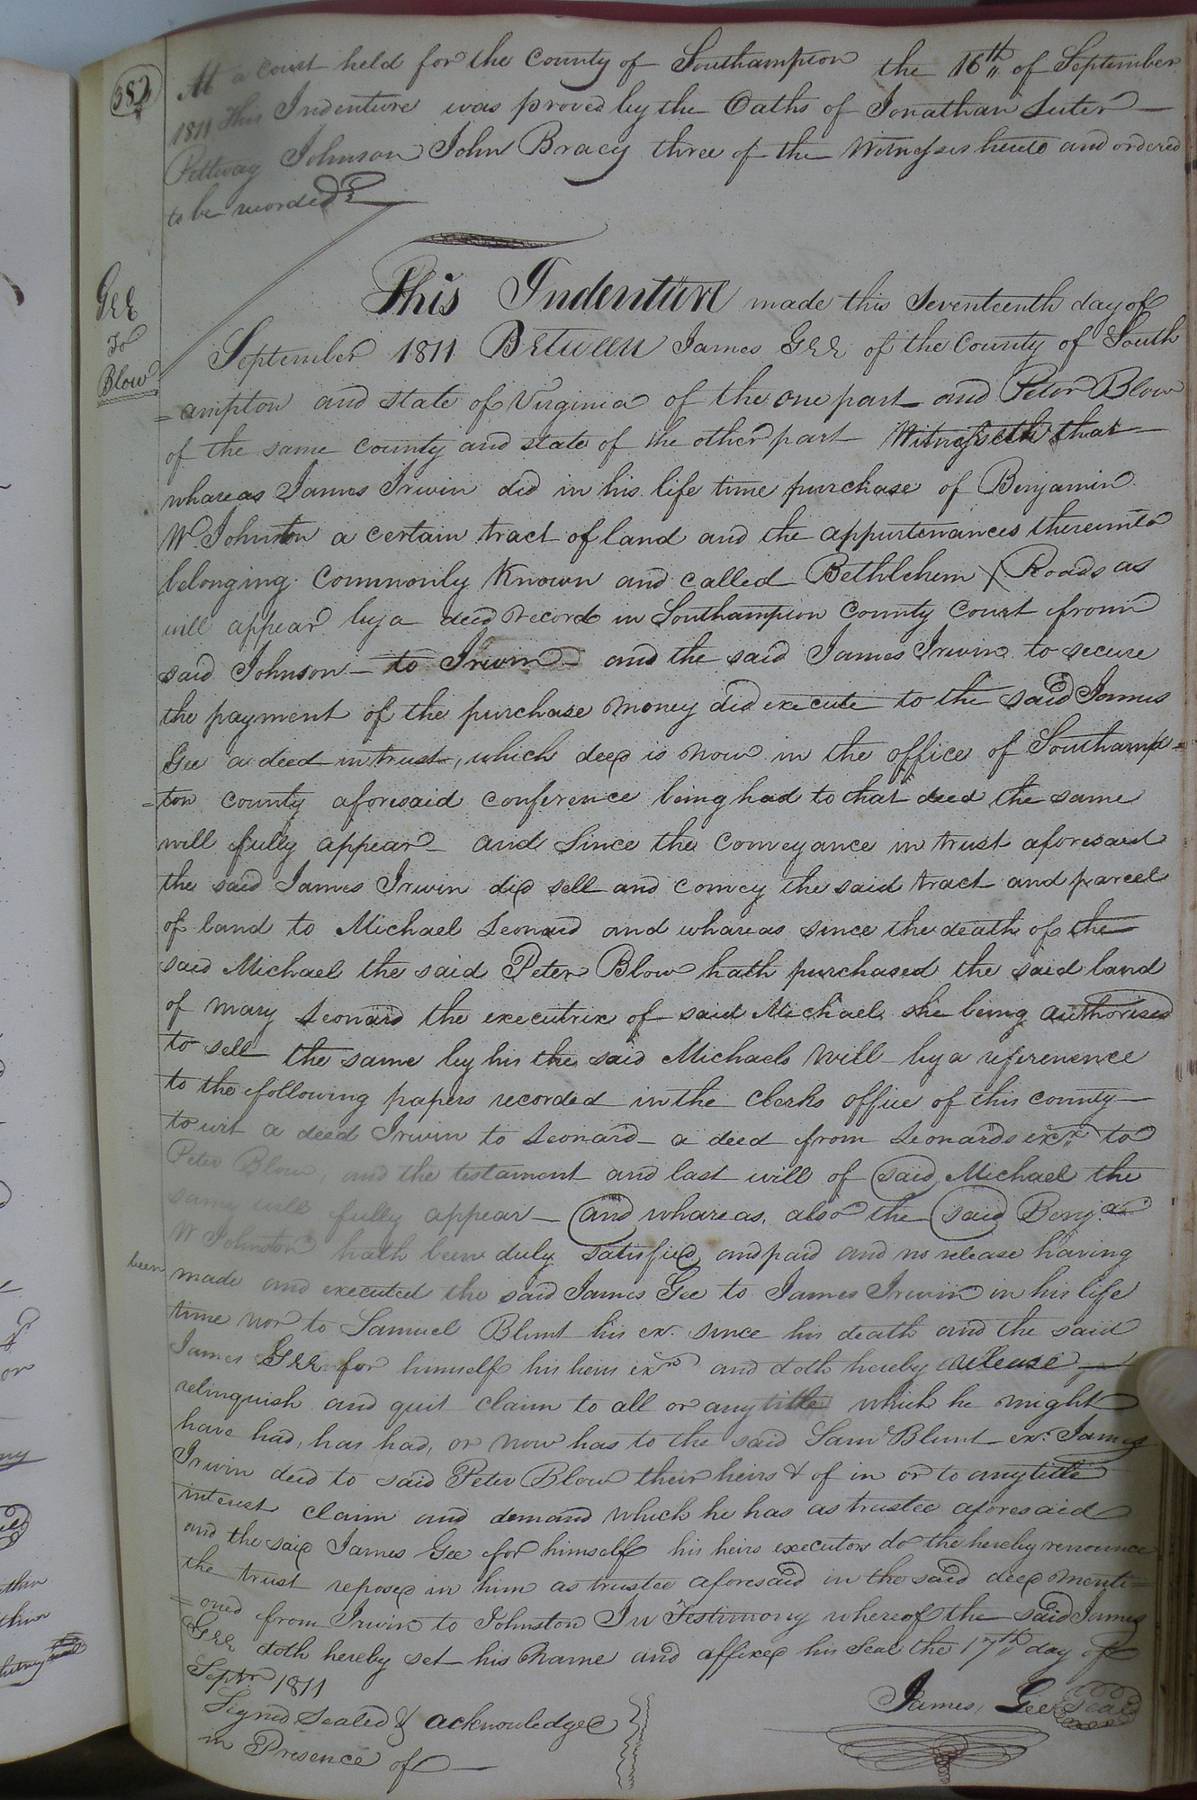 382
At a court held for the County of Southampton the 16th of September
1811 This Indenture was proved by the Oaths of Jonathan Luter
Pettway Johnson John Bracy three of the Witnesses hereto and ordered
to be recorded
Gee
To
Blow
This Indenture made this Seventeenth day of
September 1811 Between James Gee of the County of South
=ampton and State of Virginia of the one part and Peter Blow
of the same county and state of the other part Witnesseth that
whareas James Irwin did in his life time purchase of Benjamin
W. Johnston a certain tract of land and the appurtenances thereunto
belonging Commonly Known and called Bethlehem X Roads as
will appear by a deed record in Southampton County Court from
said Johnson to Irwin and the said James Irwin to secure
the payment of the purchase money did execute to the said James
Gee a deed in trust, which deed is now in the office of Southamp=
=ton county aforesaid conference being had to that deed the same
will fully appear and since the conveyance in trust aforesaid
the said James Irwin did sell and convey the said tract and parcel
of land to Michael Leonard and whareas since the death of the
said Michael the said Peter Blow hath purchased the said land
of Mary Leonard the executrix of said Michael she being authorised
to sell the same by his the said Michaels will by a referenence
to the following papers recorded in the Clerks office of this county
to wit a deed Irwin to Leonard a deed from Leonards exx to
Peter Blow, and the testament and last will of said Michael the
same will fully appear and whareas, also the said Benja
W Johnston hath been duly satisfied and paid and no release having
been
made and executed the said James Gee to James Irwin in his life
time nor to Samuel Blunt his ex. since his death and the said
James Gee for himself his heirs exrs and doth hereby release
relinquish and quit claim to all or any title which he might
have had, has had, or now has to the said Saml Blunt exr. James
Irwin decd to said Peter Blow their heirs & of in or to any title
interest claim and demand which he has as trustee aforesaid
and the said James Gee for himself his heirs executors do the hereby renounce
the trust reposed in him as trustee aforesaid in the said deed menti=
=oned from Irwin to Johnston In Testimony whereof the said James
Gee doth hereby set his Name and affixed his Seal the 17th day of
Septr 1811
Signed Sealed & acknowledged
in Presence of
James Gee Seal